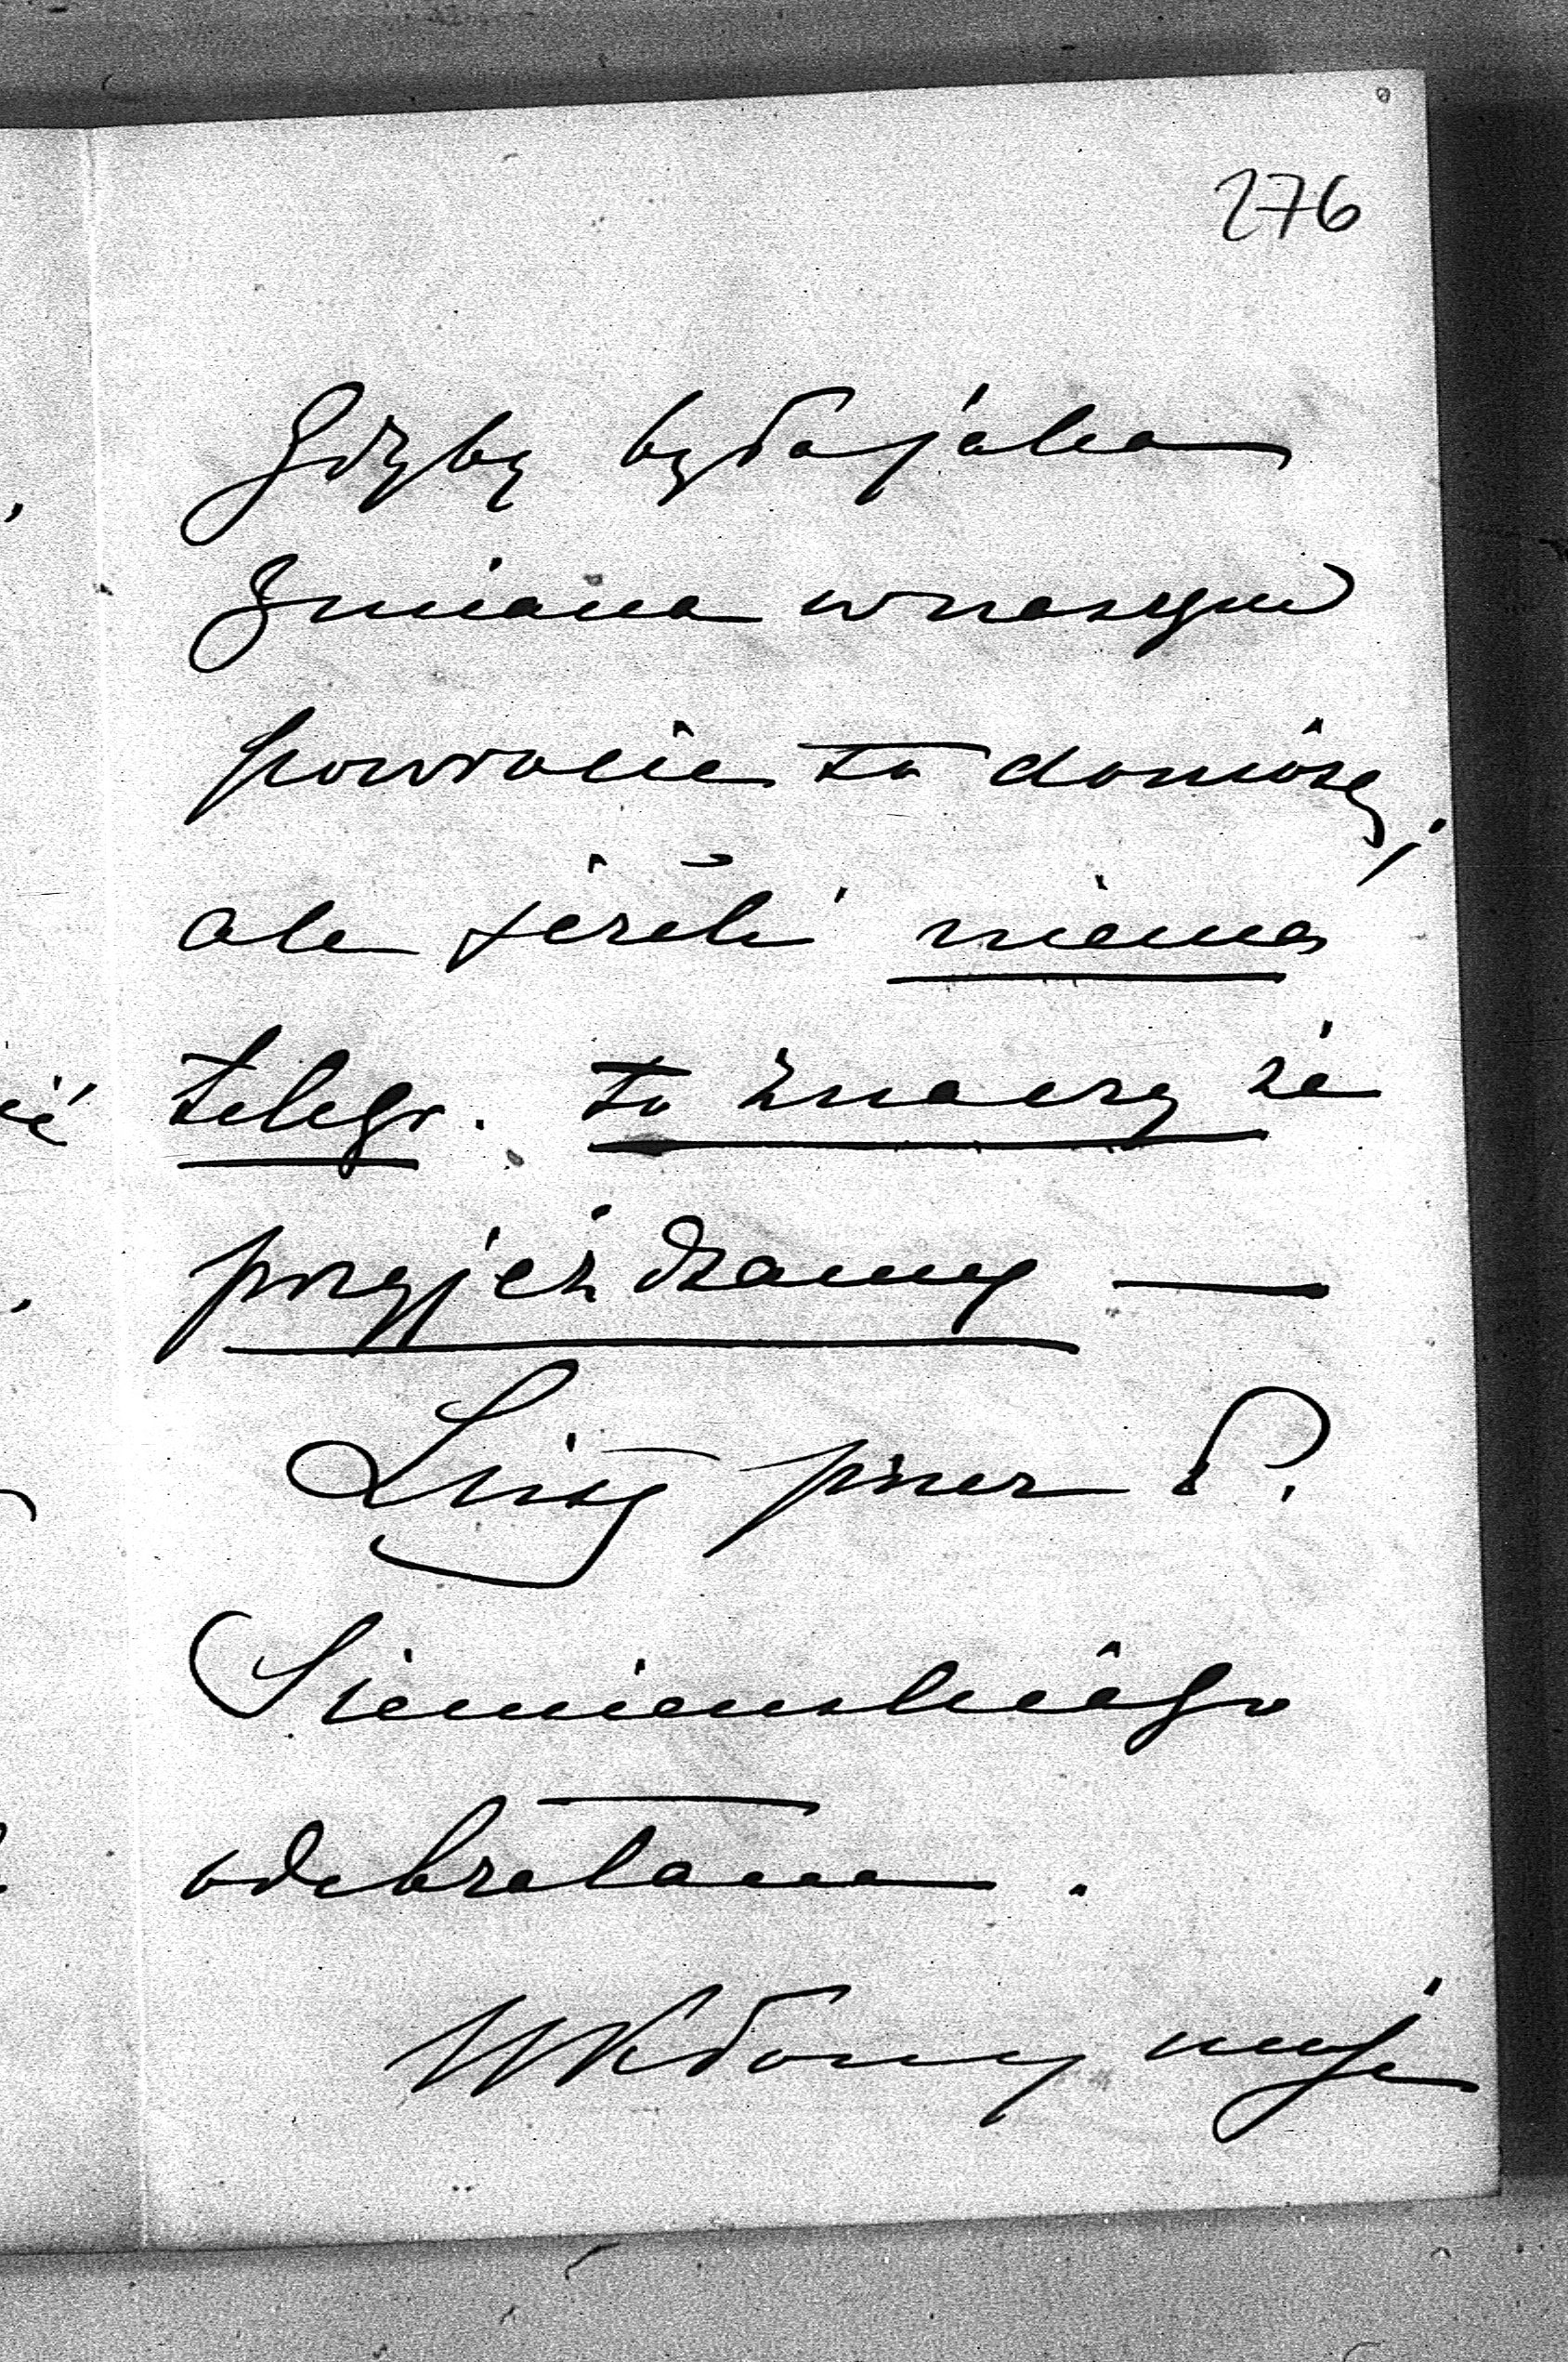 276
Gdyby była jaka
zmiana w naszym
powrocie to doniosę,
ale jeżeli niema
telegr. to znaczy że
przyjeżdzamy —
List przez P.
Siemienskiego
odebrałam.